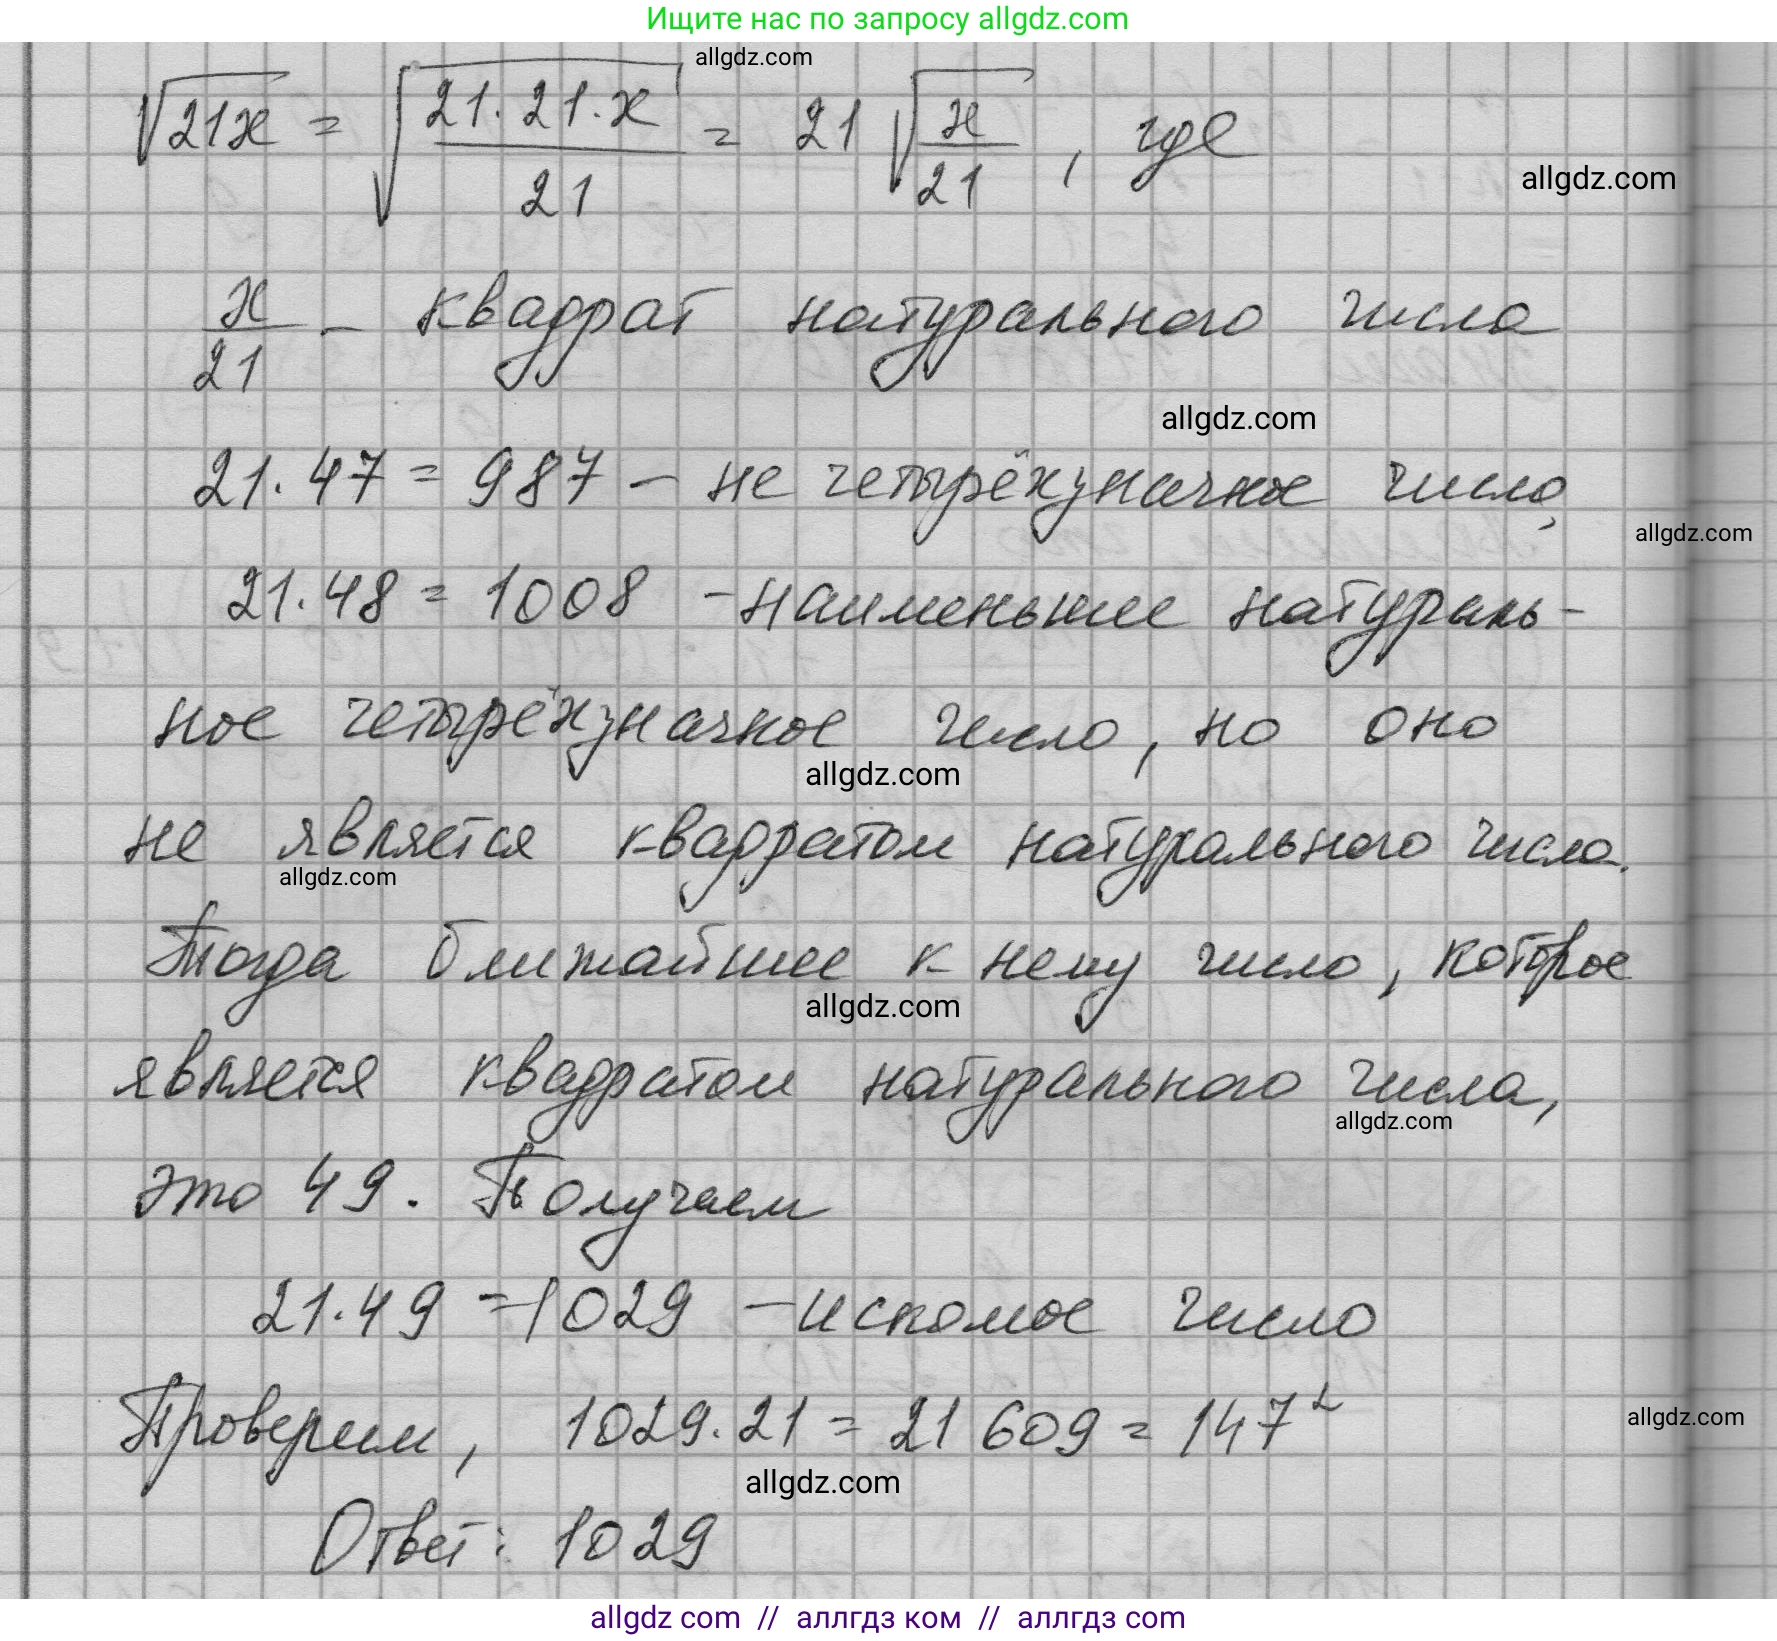 Ищите нас по запросу allgdz.com
allgdz.com
√21x = √(21·21·x / 21) = 21 √(x / 21) , где
allgdz.com
x / 21 – квадрат натурального числа
allgdz.com
21·47 = 987 – не четырёхзначное число,
allgdz.com
21·48 = 1008 – наименьшее натураль–
ное четырёхзначное число, но оно
allgdz.com
не является квадратом натурального числа.
allgdz.com
Тогда ближайшее к нему число, которое
allgdz.com
является квадратом натурального числа,
allgdz.com
это 49. Получаем
21·49 = 1029 – искомое число
Проверим, 1029·21 = 21 609 = 147²
allgdz.com
allgdz.com
Ответ: 1029
allgdz com // аллгдз ком // аллгдз com